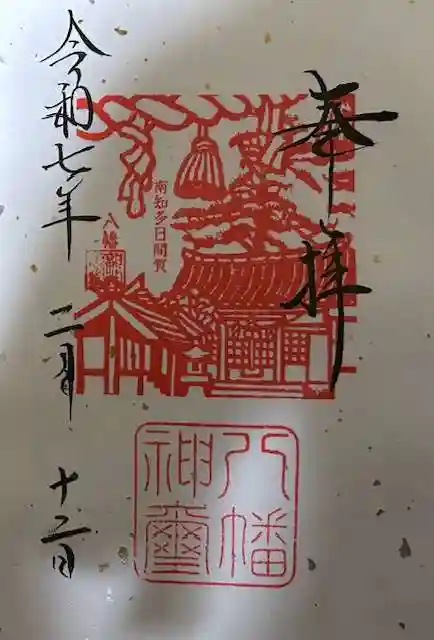 奉拝
南知多日間賀
八幡
八幡
神璽
令和七年二月十二日